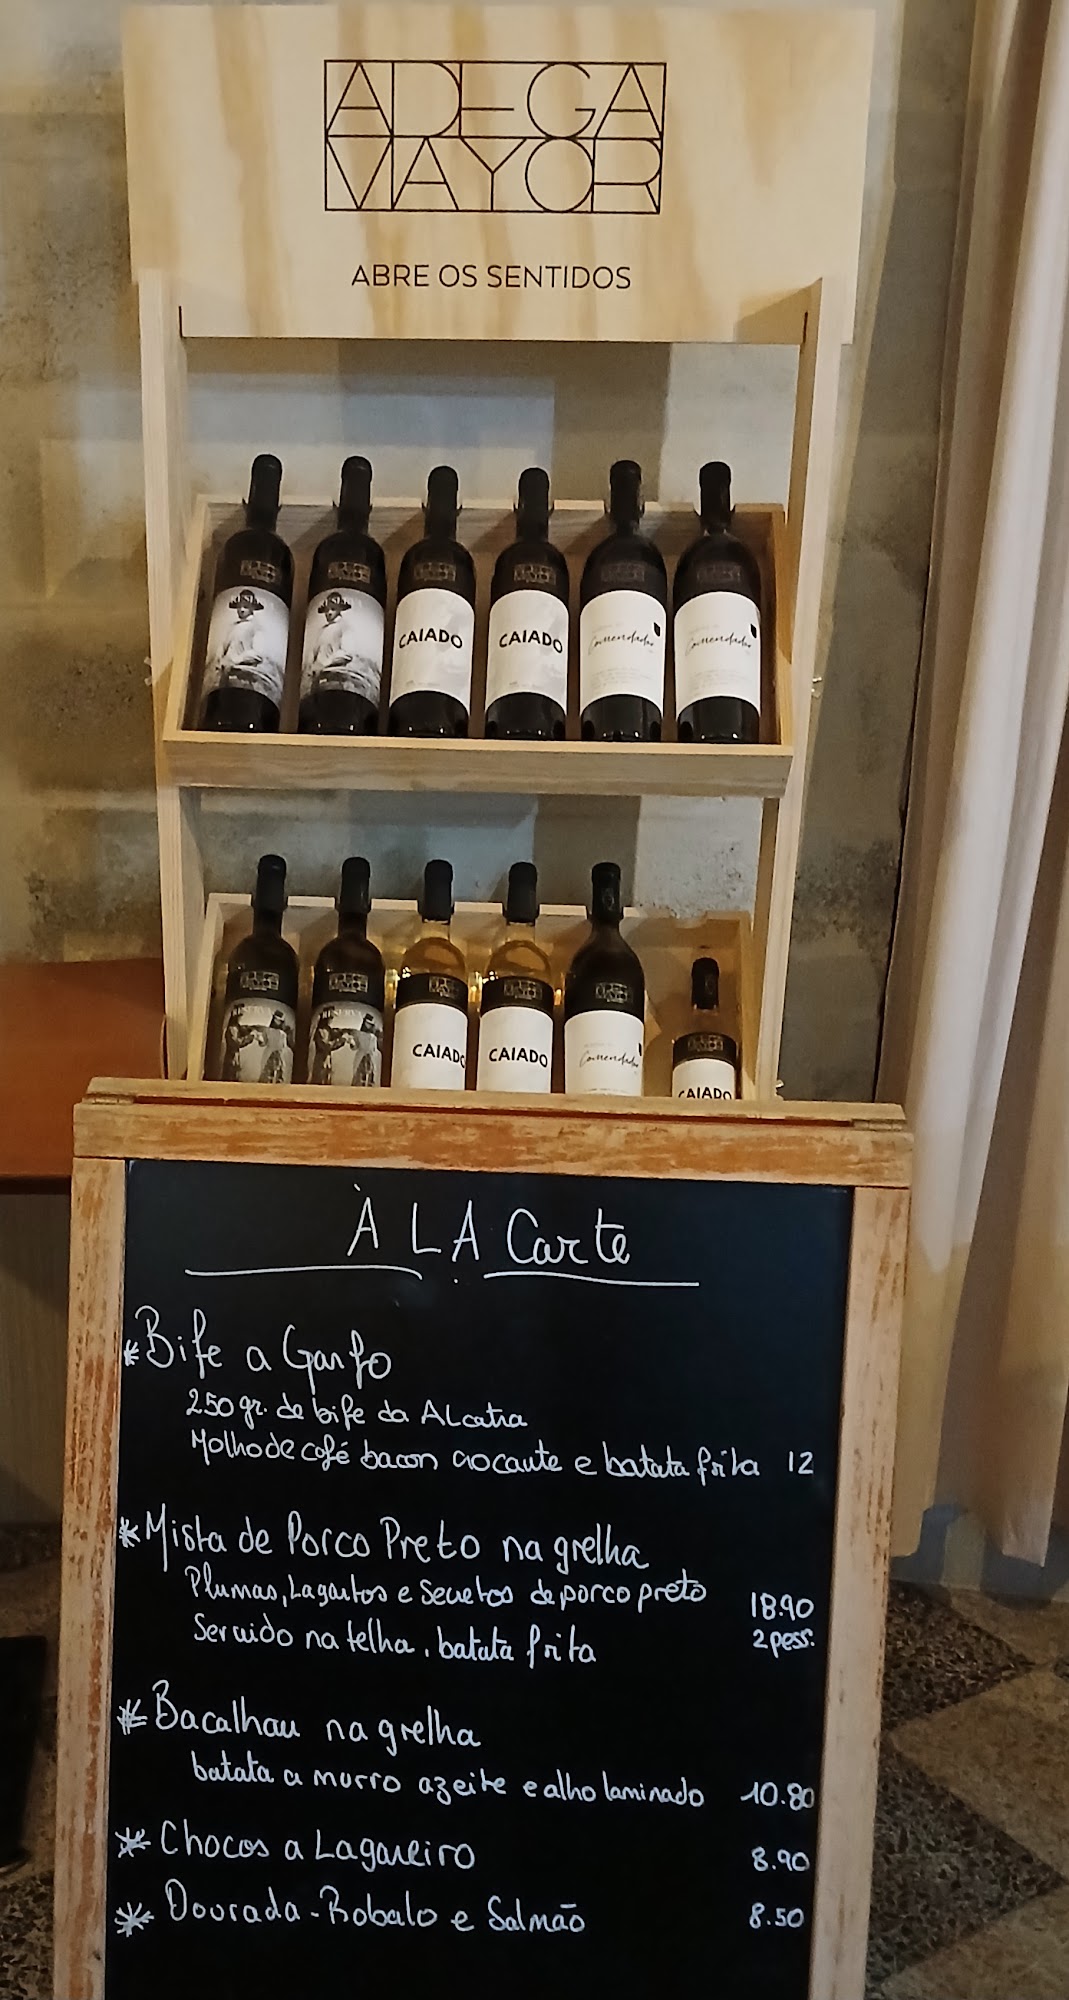 ADEGA
MAYOR
ABRE OS SENTIDOS
RESERVA
CAIADO
CAIADO
Comendador
Comendador
RESERVA
RESERVA
CAIADO
CAIADO
Comendador
CAIADO
À LA Carte
*Bife a Ganfo
250gr. de bife da Alcatra
Molho de café bacon crocante e batata frita 12
*Mista de Porco Preto na grelha
Plumas, Lagartos e Secretos de porco preto 18.90
Servido na telha, batata frita 2 pess.
*Bacalhau na grelha
batata a murro azeite e alho laminado 10.80
*Chocos a Lagareiro 8.90
*Dourada-Robalo e Salmão 8.50